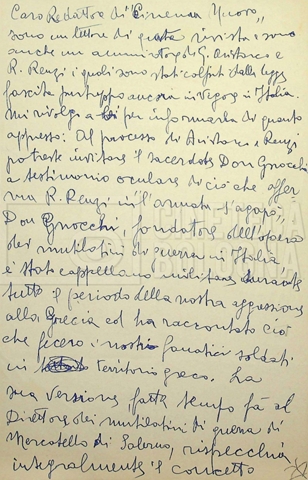 Caro Redattore di "Cinema Nuovo",
sono un lettore di questa rivista e sono
anche un ammiratore di G. Aristarco e
R. Renzi i quali sono stati colpiti dalla legge
fascista purtroppo ancora in vigore in Italia.
Mi rivolgo a Lei per informarla di quanto
appresso: Al processo di Aristarco e Renzi
potreste invitare il sacerdote Don Gnocchi
a testimonio oculare di ciò che affer
ma R. Renzi in "l'armata s'agapò",
Don Gnocchi, fondatore dell'opera
dei mutilatini di guerra in Italia
è stato cappellano militare durante
tutto il periodo della nostra aggressione
alla Grecia ed ha raccontato ciò
che fecero i nostri fanatici soldati
in territorio greco. La
sua versione, fatta tempo fa al
Direttore dei mutilatini di guerra di
Mercatello di Salerno, rispecchia
integralmente il concetto